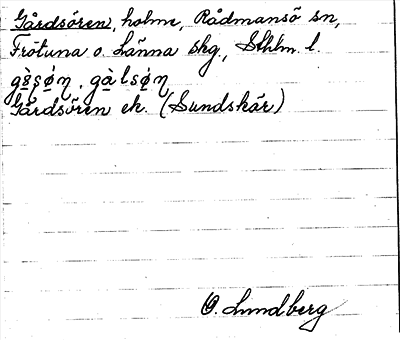 Gårdsören, holme, Rådmansö sn,
Frötuna o. Länna skg., Sthlm. l.
gåsø̀ŋ, gàlsø̀ŋ
Gårdsören ek. (Sundskär)
O. Lundberg